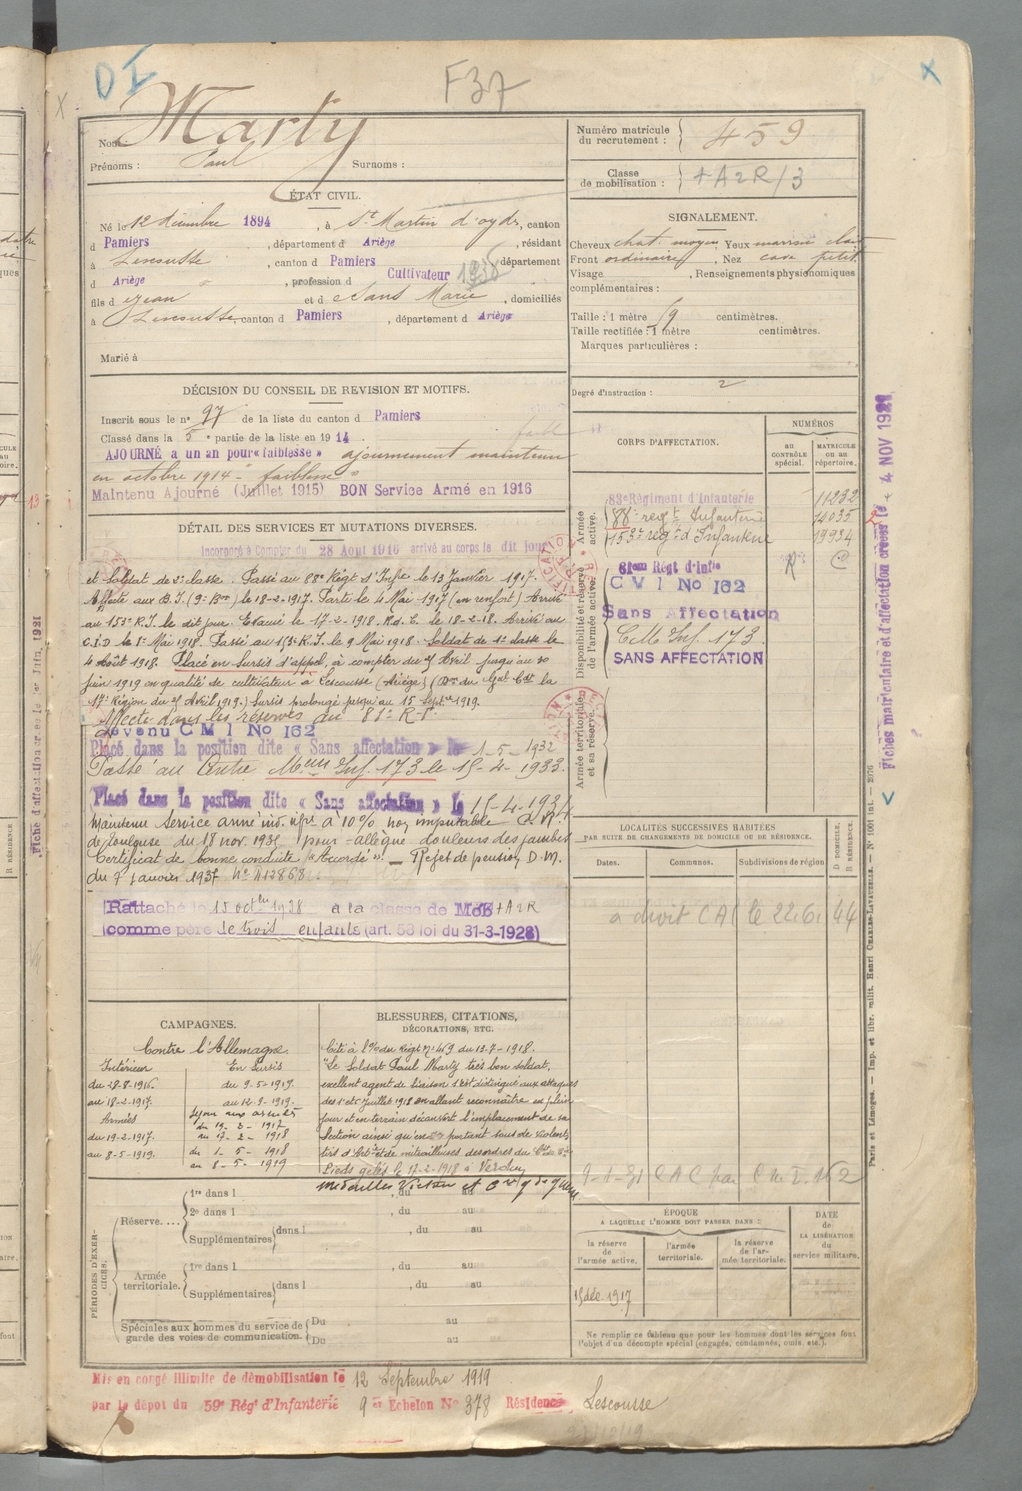 DI
F37
Nom Marty
Prénoms : Paul Surnoms :
Numéro matricule du recrutement : 459
Classe de mobilisation : + A2R/3
ÉTAT CIVIL.
Né le 12 décembre 1894, à St Martin d'oydes, canton
d Pamiers, département d Ariège, résidant
à Lescousse, canton d Pamiers, département
d Ariège, profession d Cultivateur
fils d Jean et d Sans Marie, domiciliés
à Lescousse, canton d Pamiers, département d Ariège
Marié à
SIGNALEMENT.
Cheveux chat. moyen Yeux marron clair
Front ordinaire, Nez cave petit
Visage , Renseignements physionomiques
complémentaires :
Taille : 1 mètre centimètres.
Taille rectifiée : 1 mètre centimètres.
Marques particulières :
Degré d'instruction : 2
DÉCISION DU CONSEIL DE REVISION ET MOTIFS.
Inscrit sous le n° 97 de la liste du canton d Pamiers
Classé dans la 5e partie de la liste en 1914.
AJOURNÉ a un an pour « faiblesse » ajournement maintenu
en octobre 1914 - faiblesse
Maintenu Ajourné (Juillet 1915) BON Service Armé en 1916
DÉTAIL DES SERVICES ET MUTATIONS DIVERSES.
Incorporé à Compter du 28 Aout 1916 arrivé au corps le dit jour
et Soldat de 2e classe. Passé au 88e Régt d'Infie le 13 Janvier 1917.
Affecté aux B.I. (9e Bon) le 18-2-1917. Parti le 4 Mai 1917 (en renfort) Arrivé
au 153e R.I. le dit jour. Evacué le 17-2-1918. R.d.C. le 18-2-18. Arrivé au
C.I.D le 1er Mai 1918. Passé au 153e R.I. le 9 Mai 1918. Soldat de 1e classe le
4 Août 1918. Placé en Sursis d'appel, à compter du Avril jusqu'au 30
Juin 1919 en qualité de cultivateur à Lescousse (Ariège) (Don du Gal Cdt la
17e Région du Avril 1919.) Sursis prolongé jusqu'au 15 Septbre 1919.
Affecté dans les réserves au 81e R.I.
devenu C M I No 162
Placé dans la position dite « Sans affectation » le 1-5-1932
Passé au Centre Meur Inf. 173 le 15-4-1933.
Placé dans la position dite « Sans affectation » le 15-4-1934
Maintenu Service armé inv. infre à 10% non imputable C.R.
de Toulouse du 18 nov. 1935 pour allègue douleurs des jambes
Certificat de bonne conduite « Accordé ». — Rejet de pension D.M.
du 7 janvier 1937 N° 412868
Rattaché le 15 octbre 1938 à la classe de MoB + A2R
comme père de trois enfants (art. 58 loi du 31-3-1928)
CORPS D'AFFECTATION.
NUMÉROS
au CONTRÔLE spécial.
MATRICULE ou au répertoire.
Armée active.
83e Régiment d'Infanterie 11232
88e regt Infanterie 14035
153e regt d'Infanterie 19934
Disponibilité et réserve de l'armée active.
81me Régt d'Infie
C M I No 162
Sans Affectation
Cille Inf. 173
SANS AFFECTATION
Armée territoriale et sa réserve.
LOCALITÉS SUCCESSIVES HABITÉES
PAR SUITE DE CHANGEMENTS DE DOMICILE OU DE RÉSIDENCE.
Dates. Communes. Subdivisions de région
D DOMICILE. R RÉSIDENCE.
a droit CAC le 22.6. 44
9-1-31 CAC par C M I. 162
CAMPAGNES.
Contre l'Allemagne.
Intérieur
du 28-8-1916.
au 18-2-1917.
Armées
du 19-2-1917.
au 8-5-1919.
En Sursis
du 9-5-1919.
au 12-9-1919.
Séjour aux armées
du 19-2-1917
au 17-2-1918
du 1-5-1918
au 8-5-1919
BLESSURES, CITATIONS,
DÉCORATIONS, ETC.
Cité à l'O/ du Régt N° 469 du 13-7-1918.
"Le Soldat Paul Marty très bon soldat,
excellent agent de liaison s'est distingué aux attaques
des 1er et Juillet 1918 en allant reconnaître en plein
jour et en terrain découvert l'emplacement de sa
Section ainsi qu'en portant sous de violents
tirs d'Artie et de mitrailleuses des ordres du
Pieds gelés le 17-2-1918 à Verdun
Médailles Victoire et Cve gde guerre
PÉRIODES D'EXERCICES.
Réserve....
1re dans l , du au
2e dans l , du au
Supplémentaires dans l , du au
Armée territoriale.
1re dans l , du au
Supplémentaires dans l , du au
Spéciales aux hommes du service de garde des voies de communication.
Du au
Du au
ÉPOQUE
A LAQUELLE L'HOMME DOIT PASSER DANS :
la réserve de l'armée active.
l'armée territoriale.
la réserve de l'armée territoriale.
DATE de LA LIBÉRATION du service militaire.
15 déc. 1917
Ne remplir ce tableau que pour les hommes dont les services font
l'objet d'un décompte spécial (engagés, condamnés, omis. etc.).
Mis en congé illimité de démobilisation le 12 Septembre 1919
par le dépot du 59e Régt d'Infanterie 9e Echelon No 378 Résidence Lescousse
Fiches matriculaire et d'affectation créées le 4 NOV 1921
Paris et Limoges. — Imp. et libr. milit. Henri CHARLES-LAVAUZELLE. — N° 1001 int. —
Fiche d'affectation créée le 1er Juin 1921